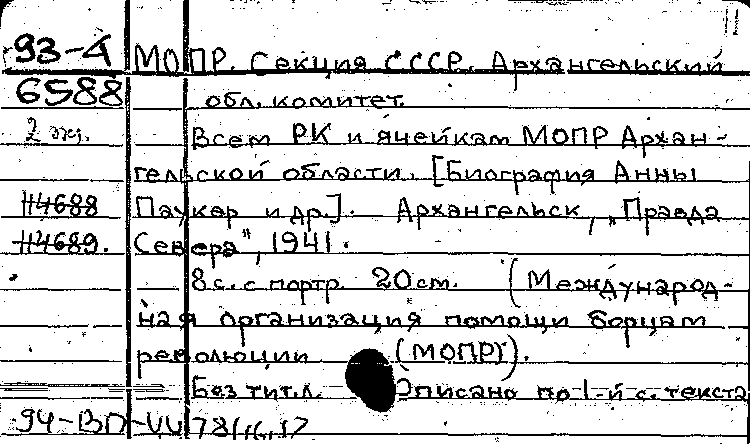 93-4 МОПР. Секция СССР. Архангельский
6588 обл. комитет.
2 эк. Всем РК и ячейкам МОПР Архан-
гельской области. [Биография Анны
114688 Паукер и др.]. Архангельск, „Правда
114689. Севера", 1941.
8 с. с портр. 20 см. (Международ-
ная организация помощи борцам
революции (МОПР)).
Без тит. л. Описано по 1-й с. текста
94-ВП-